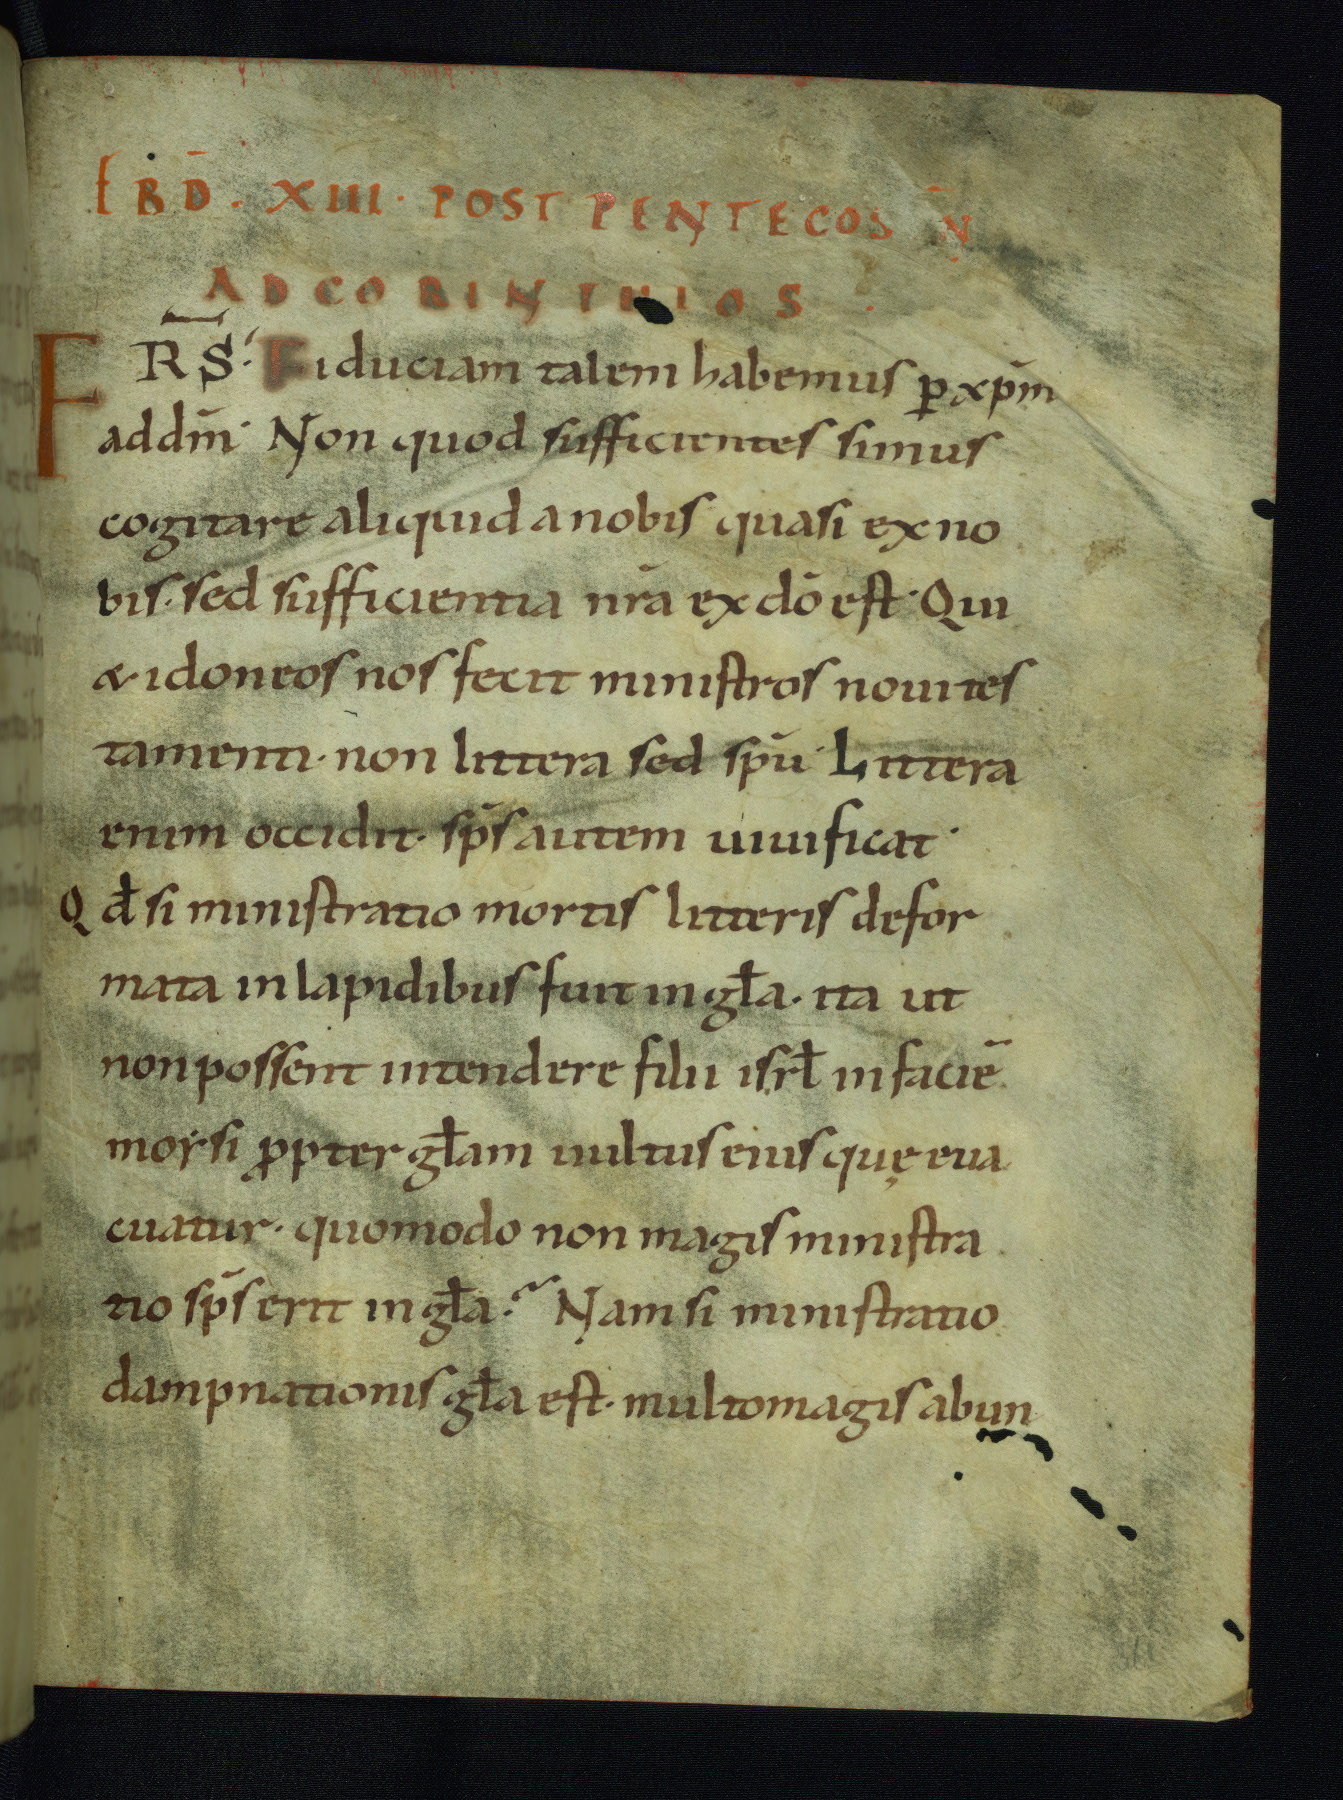 EBD̄. XIII. POST PENTECOS N̄
AD CORINTHIOS.
FRS̄. Fiduciam talem habemus ꝑ xp̄m
ad dm̄. Non quod sufficientes simus
cogitare aliquid a nobis quasi ex no
bis. sed sufficientia nr̄a ex dō est. Qui
& idoneos nos fecit ministros noui tes
tamenti. non littera sed spū. Littera
enim occidit. sp̄s autem uiuificat.
Qd̄ si ministratio mortis litteris defor
mata in lapidibus fuit in gl̄a. ita ut
non possent intendere filii isrl̄ in faciē
moẏsi ꝓpter gl̄am uultus eius quę eua
cuatur. quomodo non magis ministra
tio sp̄s erit in gl̄a? Nam si ministratio
dampnationis gl̄a est. multo magis abun